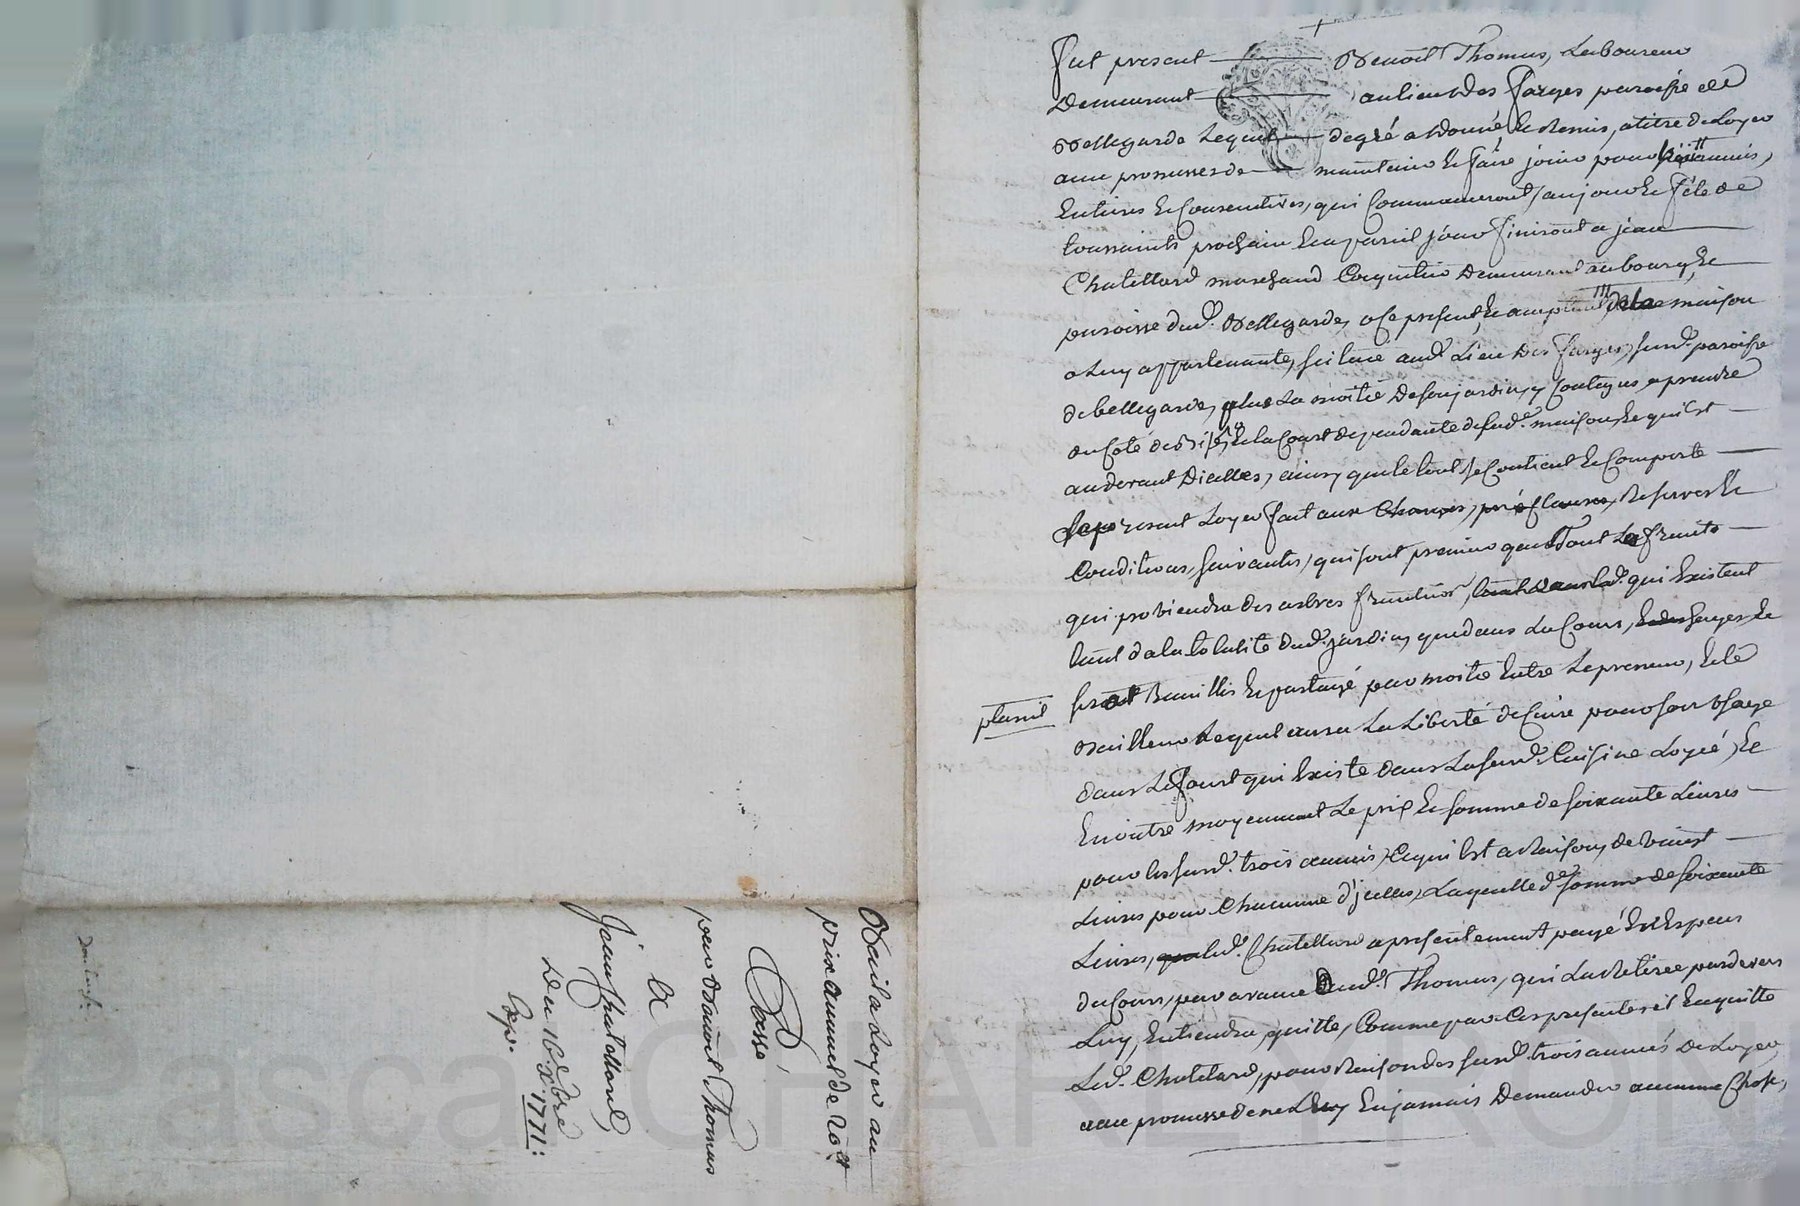 fut present Benoit Thomas, Laboureur
Demeurant au lieu des farges paroisse de
Bellegarde Lequel de gré a donné et Remis, a titre de Loyer
avec promesse de maintenir et faire jouir pour
Entieres et Consecutives, qui Commanceront au jour et fête de
toussaints prochain et a pareil jour finiront a jean
Chatellard marchand Coquetier Demeurant au bourg, et
paroisse dud. Bellegarde, a ce present et acceptant, de la maison
a Luy appartenante, scituée aud. Lieu des farges, susd. paroisse
de bellegarde, plus La moitié de son jardin, y Contigus, a prendre
du Coté de Bise, et la Court dependante desud. maison, et qui est
au devant Dicelles, ainsy que le tout se Contient et Comporte
Le present Loyer fait aux Charges, Reserves et
Conditions, suivantes, qui sont premier que Tout Les fruits
qui proviendra des arbres fruitiers, qui Existent
tant dala totalité dud. jardin, que dans La Cour,
seront Ceuillis et partagé par moitié Entre Le preneur, et le
plus il
Bailleur Lequel aura La Liberté de Cuire pour son Usage
dans Le fourt qui Existe dans La susd. Cuisine Loyée, et
En outre moyennant Le prix et somme de soixante Livres
pour les susd. trois années, Ce qui Est a Raison, de vaingt
Livres pour Chacunne d'jcelles, Laquelle de somme de soixante
Livres, led. Chatellard a presentement payé En Especes
du Cours, par avance aud. Thomas, qui La Retirée pardevers
Luy, En tiendra quitte, Comme par Ces presentes il En quitte
Led. Chatelard, pour Raison des susd. trois années de Loyer
avec promesse de ne Luy En jamais Demander aucunne Chose,
Bail a Loyer au
prix annuel de 20 lt
passé,
par Benoit Thomas
a
Jean Chatellard,
Du 16 xbre 1771:
Exp.